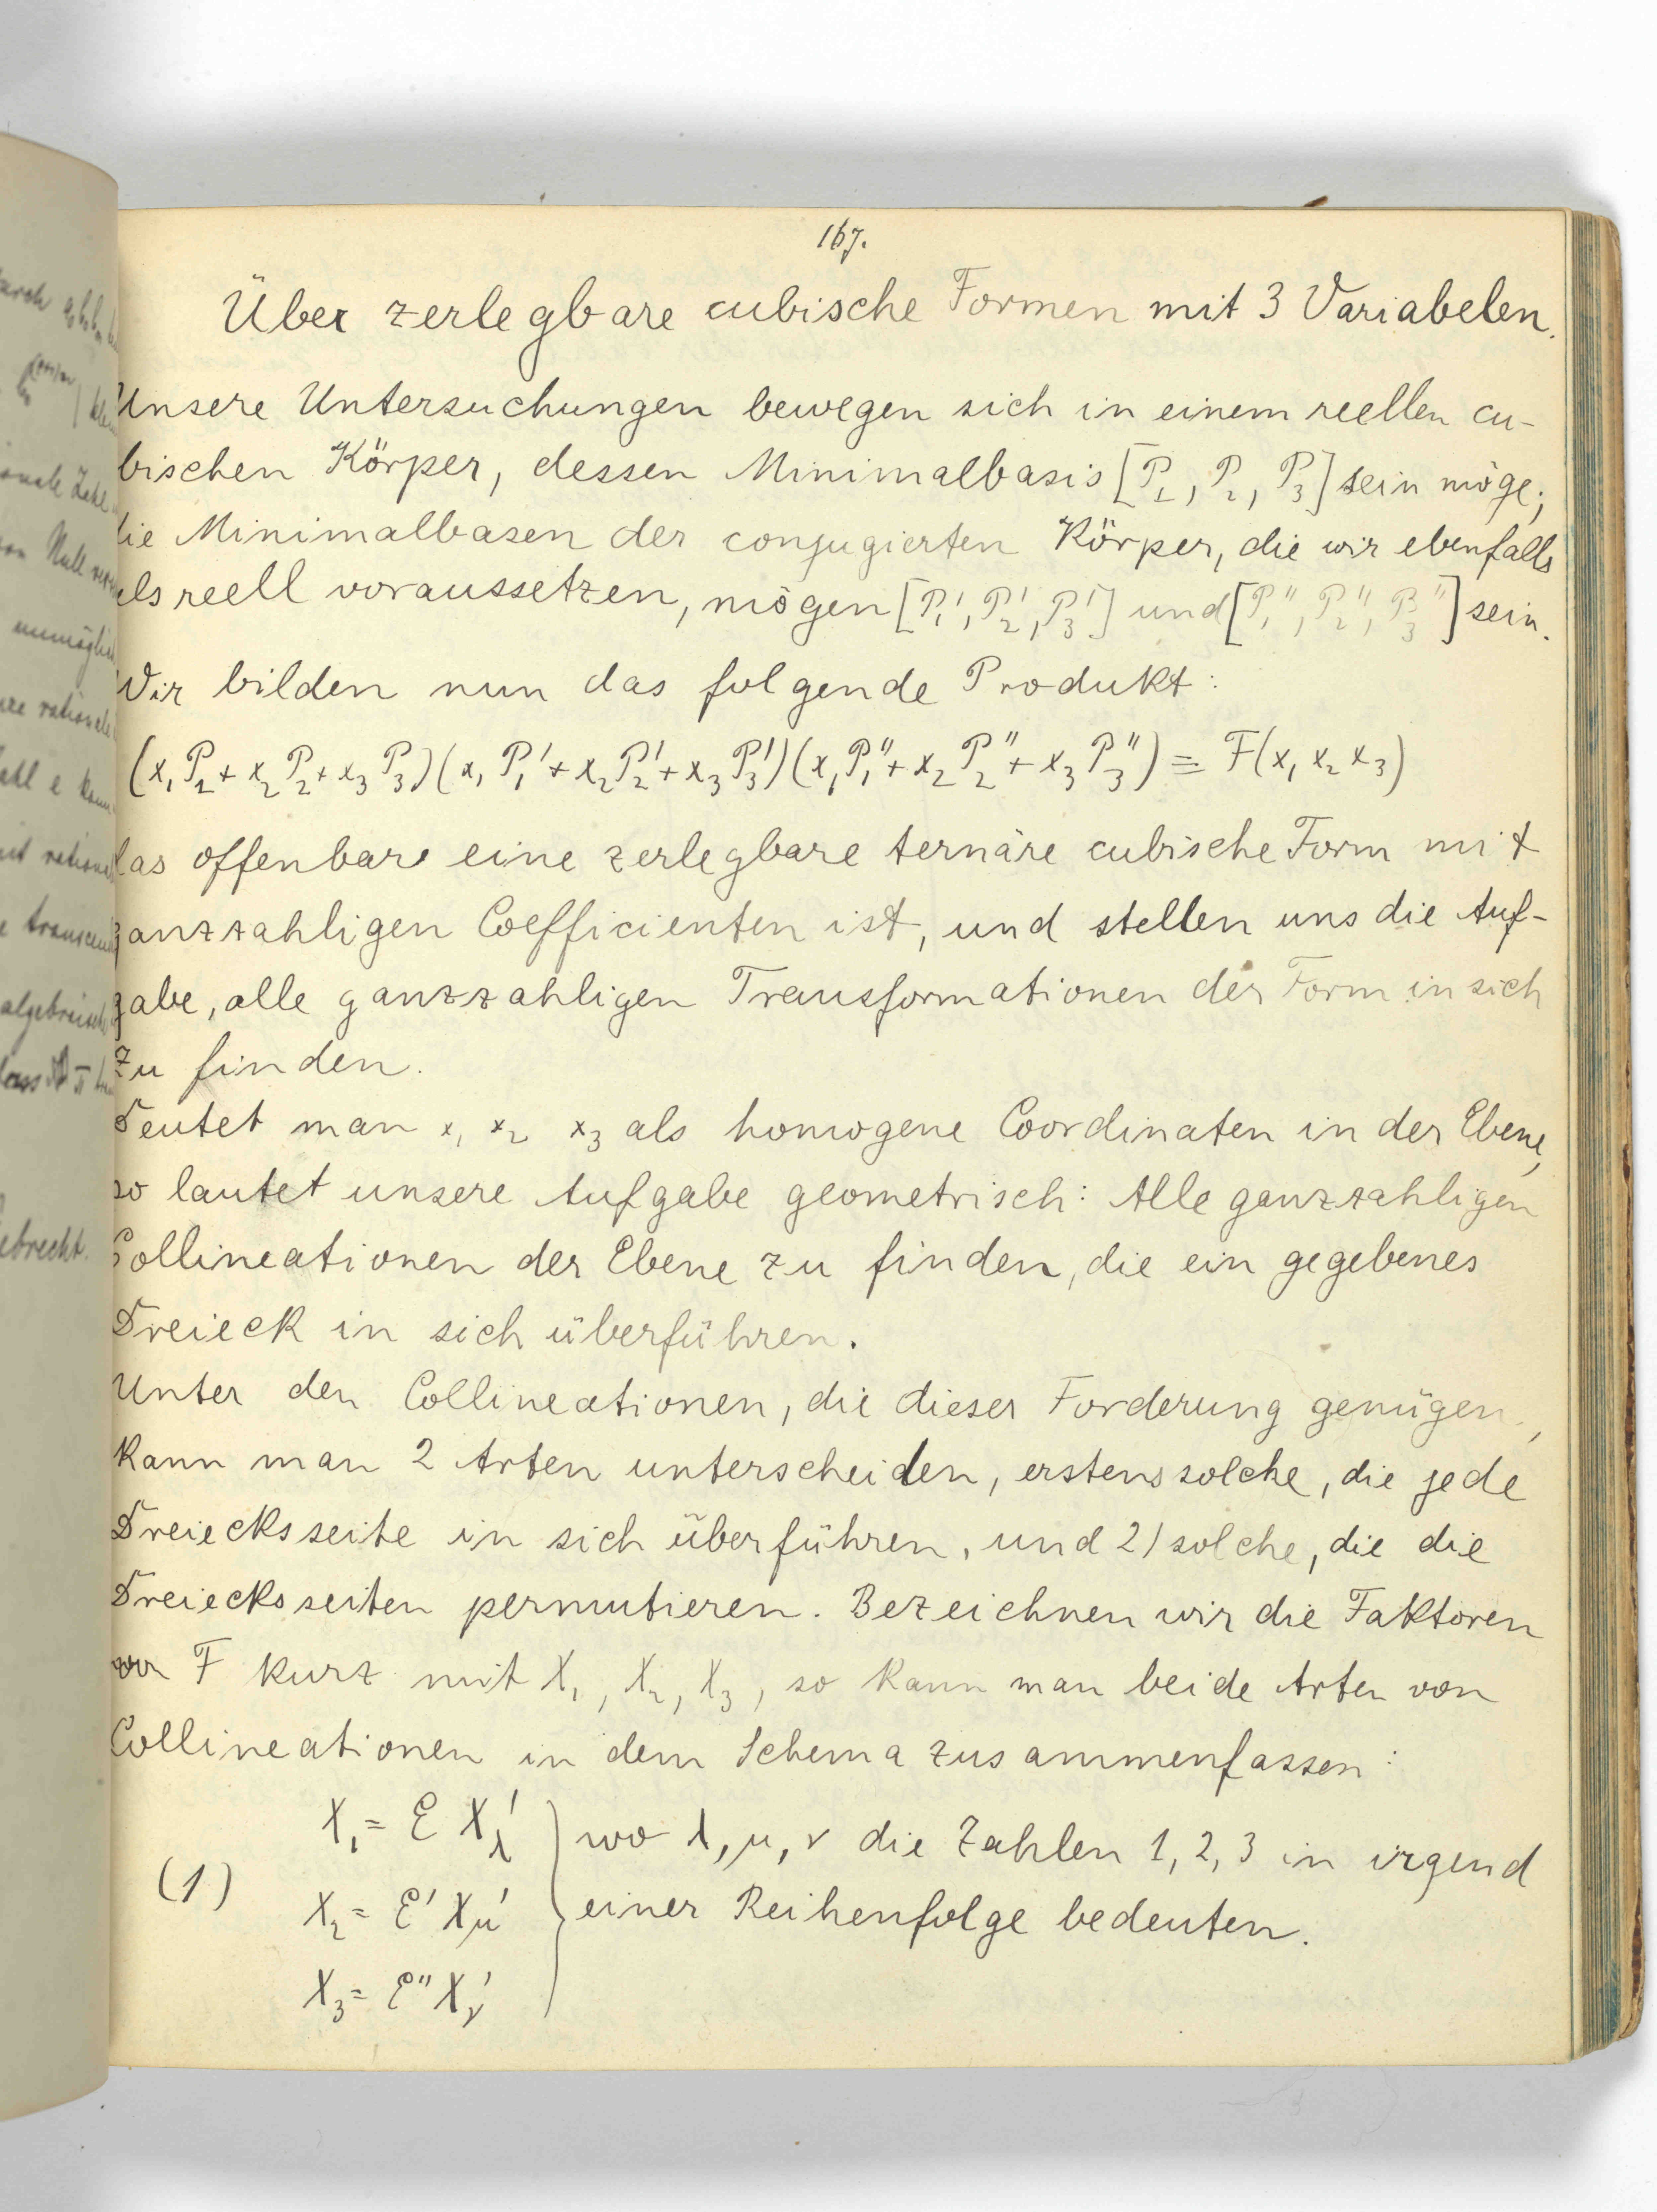 167.
Über zerlegbare cubische Formen mit 3 Variabelen.
Unsere Untersuchungen bewegen sich in einem reellen cu-
bischen Körper, dessen Minimalbasis [P₁, P₂, P₃] sein möge;
die Minimalbasen der conjugierten Körper, die wir ebenfalls
als reell voraussetzen, mögen [P₁', P₂', P₃'] und [P₁'', P₂'', P₃''] sein.
Wir bilden nun das folgende Produkt:
(x₁P₁ + x₂P₂ + x₃P₃)(x₁P₁' + x₂P₂' + x₃P₃')(x₁P₁'' + x₂P₂'' + x₃P₃'') = F(x₁ x₂ x₃)
das offenbar eine zerlegbare ternäre cubische Form mit
ganzzahligen Coefficienten ist, und stellen uns die Auf-
gabe, alle ganzzahligen Transformationen der Form in sich
zu finden.
Deutet man x₁ x₂ x₃ als homogene Coordinaten in der Ebene,
so lautet unsere Aufgabe geometrisch: Alle ganzzahligen
Collineationen der Ebene zu finden, die ein gegebenes
Dreieck in sich überführen.
Unter den Collineationen, die dieser Forderung genügen,
kann man 2 Arten unterscheiden, erstens solche, die jede
Dreiecksseite in sich überführen, und 2) solche, die die
Dreiecksseiten permutieren. Bezeichnen wir die Faktoren
von F kurz mit X₁, X₂, X₃, so kann man beide Arten von
Collineationen in dem Schema zusammenfassen:
X₁ = ε X'λ } wo λ, μ, ν die Zahlen 1, 2, 3 in irgend
(1) X₂ = ε' X'μ } einer Reihenfolge bedeuten.
X₃ = ε'' X'ν